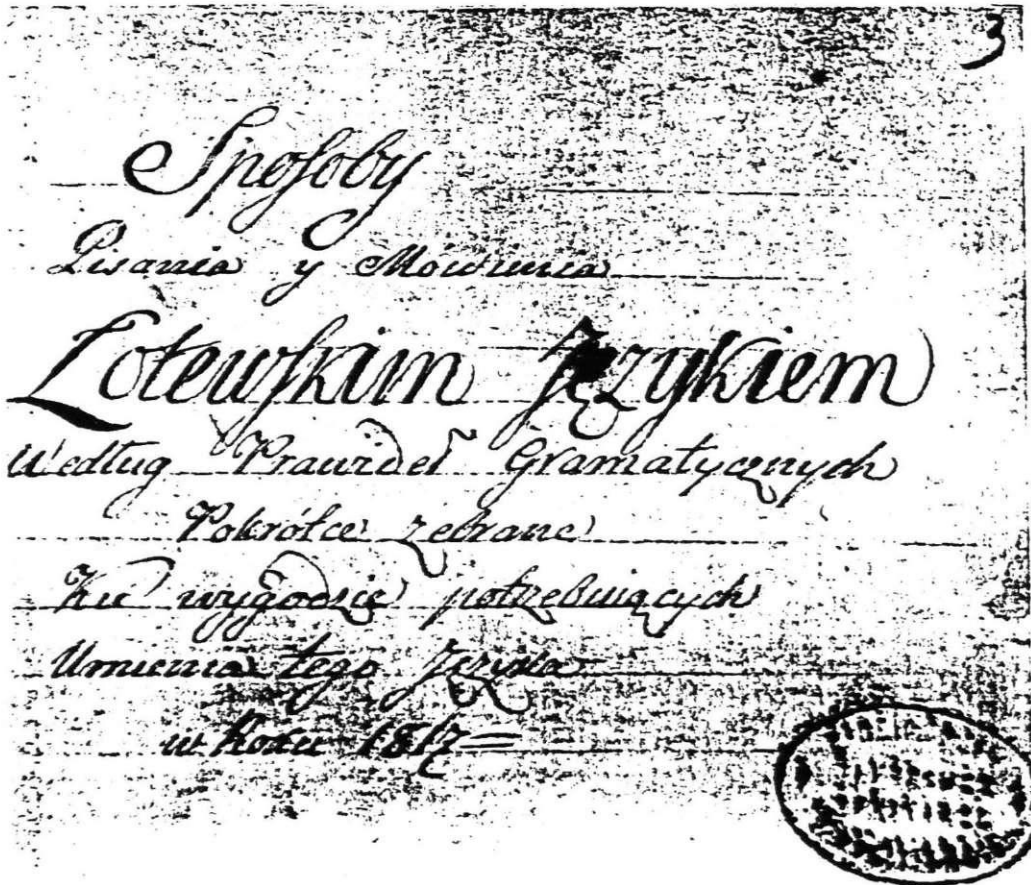 3
Spoſoby
Pisania y Mówienia
Łotewſkim Językiem
Według Prawideł Gramatycznych
Pokrótce zebrane
Ku wygodzie potrzebuiących
Umienia tego Języka
w Roku 1817